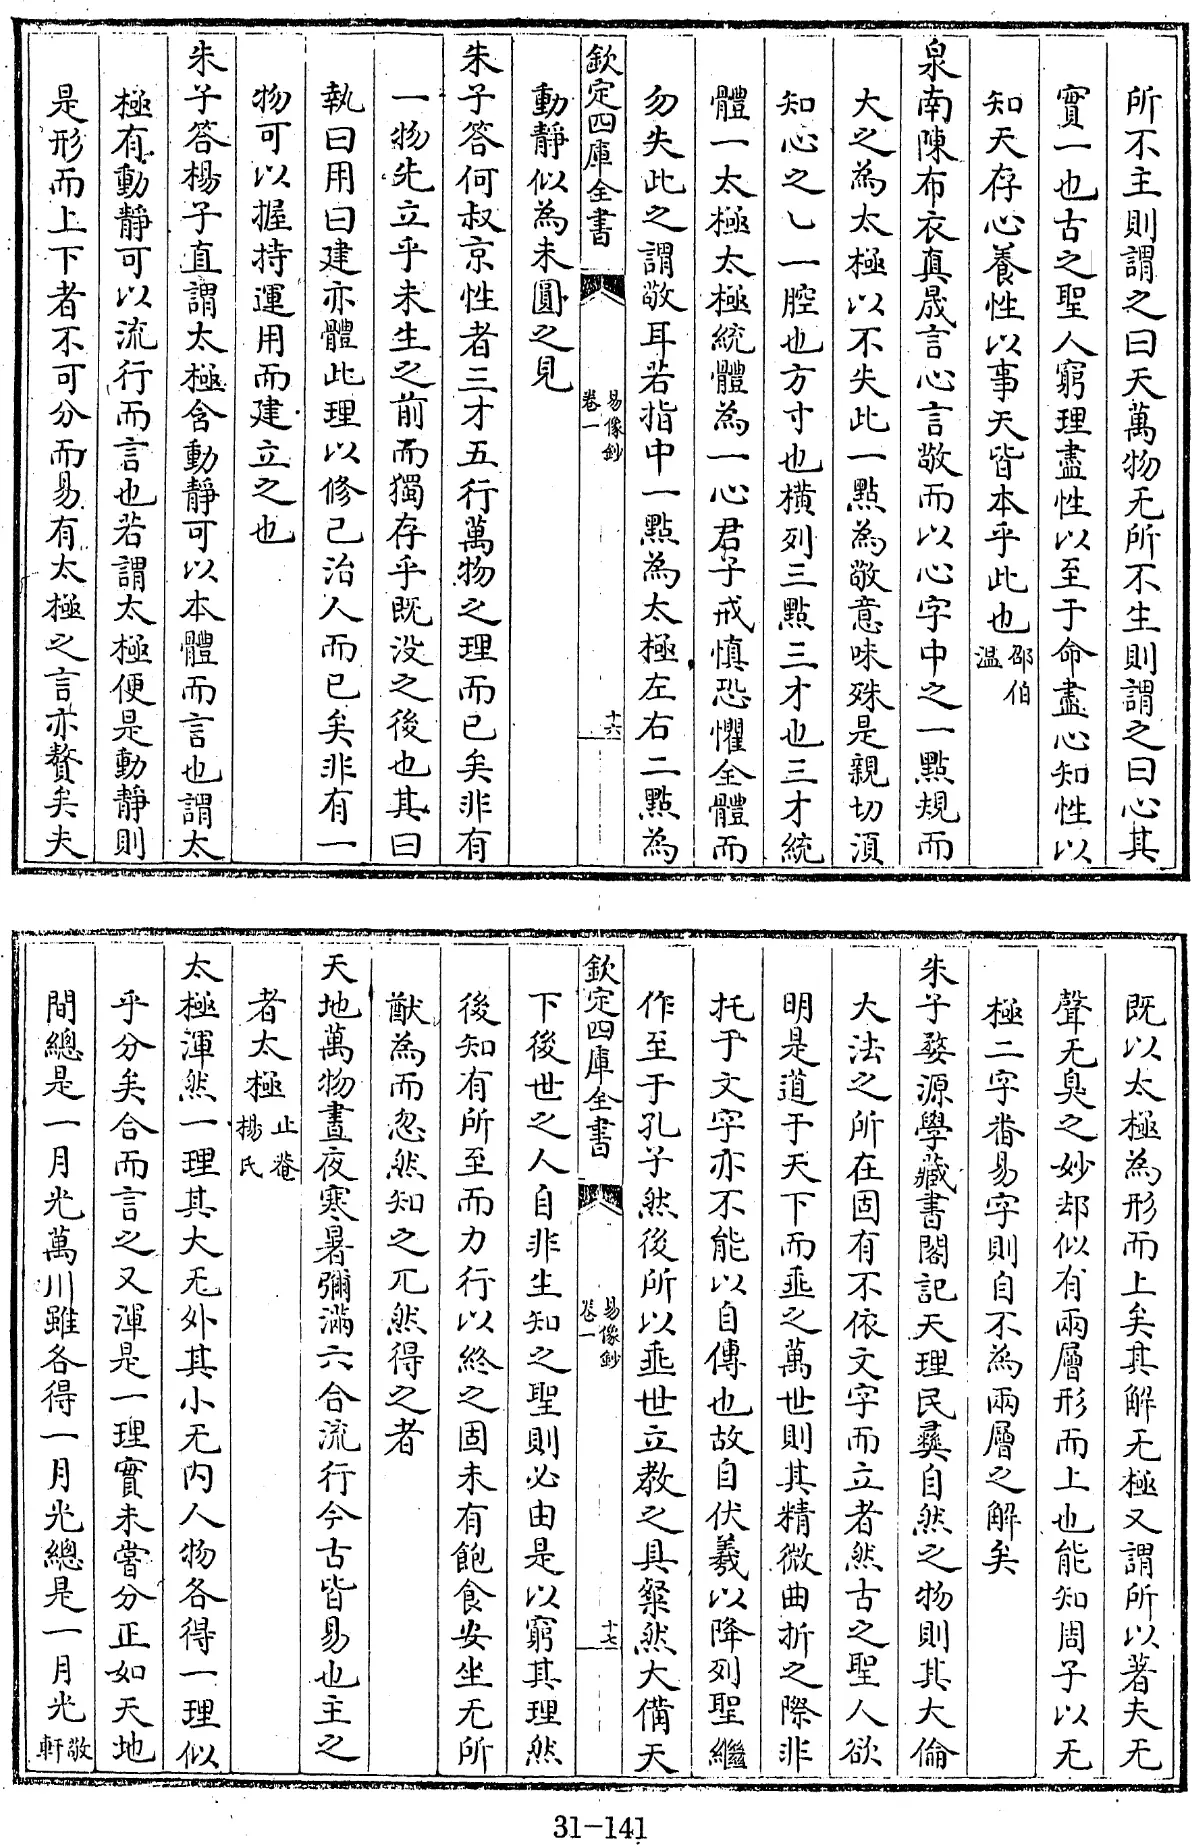 所不主則謂之曰天萬物无所不生則謂之曰心其
實一也古之聖人窮理盡性以至于命盡心知性以
知天存心養性以事天皆本乎此也邵伯温
泉南陳布衣真晟言心言敬而以心字中之一點規而
大之為太極以不失此一點為敬意味殊是親切須
知心之乚一腔也方寸也橫列三點三才也三才統
體一太極太極統體為一心君子戒慎恐懼全體而
勿失此之謂敬耳若指中一點為太極左右二點為
欽定四庫全書 易像鈔 卷一 十六
動靜似為未圓之見
朱子答何叔京性者三才五行萬物之理而已矣非有
一物先立乎未生之前而獨存乎既没之後也其曰
執曰用曰建亦體此理以修己治人而已矣非有一
物可以握持運用而建立之也
朱子答楊子直謂太極含動靜可以本體而言也謂太
極有動靜可以流行而言也若謂太極便是動靜則
是形而上下者不可分而易有太極之言亦贅矣夫
既以太極為形而上矣其解无極又謂所以著夫无
聲无臭之妙却似有兩層形而上也能知周子以无
極二字畨易字則自不為兩層之解矣
朱子婺源學藏書閣記天理民彞自然之物則其大倫
大法之所在固有不依文字而立者然古之聖人欲
明是道于天下而垂之萬世則其精微曲折之際非
托于文字亦不能以自傳也故自伏羲以降列聖繼
作至于孔子然後所以垂世立教之具粲然大備天
欽定四庫全書 易像鈔 卷一 十七
下後世之人自非生知之聖則必由是以窮其理然
後知有所至而力行以終之固未有飽食安坐无所
猷為而忽然知之兀然得之者
天地萬物晝夜寒暑彌滿六合流行今古皆易也主之
者太極止菴楊氏
太極渾然一理其大无外其小无内人物各得一理似
乎分矣合而言之又渾是一理實未嘗分正如天地
間總是一月光萬川雖各得一月光總是一月光敬軒
31-141